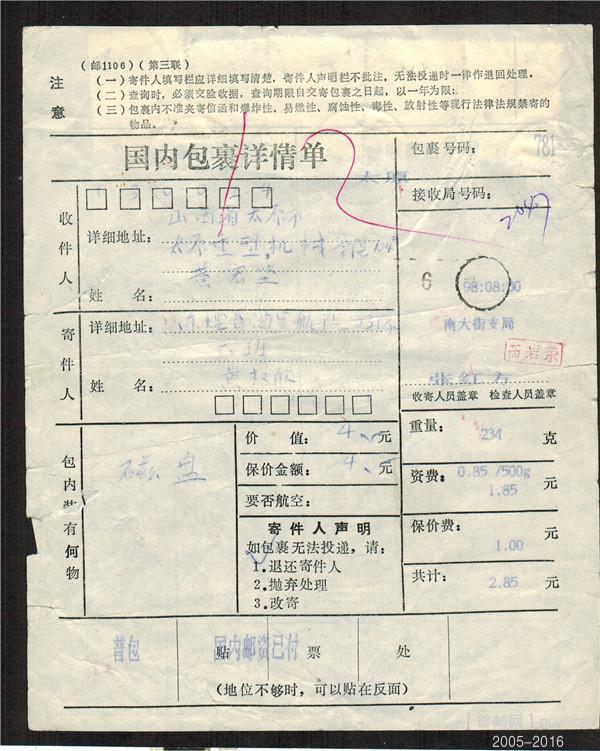 (邮1106)(第三联)
注意
(一)寄件人填写栏应详细填写清楚，寄件人声明栏不批注，无法投递时一律作退回处理。
(二)查询时，必须交验收据，查询期限自交寄包裹之日起，以一年为限；
(三)包裹内不准夹寄信函和爆炸性、易燃性、腐蚀性、毒性、放射性等现行法律法规禁寄的
物品。
国内包裹详情单
包裹号码：
781
太原
接收局号码：
收件人
详细地址：
山西省太原市
太原重型机械
姓 名：
6
98:08:30
南大街支局
寄件人
详细地址：
姓 名：
收寄人员盖章 检查人员盖章
包内装有何物
磁盘
价 值：
4.
元
保价金额：
4.
元
要否航空：
寄件人声明
如包裹无法投递，请：
1.退还寄件人
2.抛弃处理
3.改寄
重量：
234
克
资费：
0.85 /500g
1.85
元
保价费：
1.00
元
共计：
2.85
元
普包
国内邮资已付
贴 票 处
(地位不够时，可以贴在反面)
2005-2016